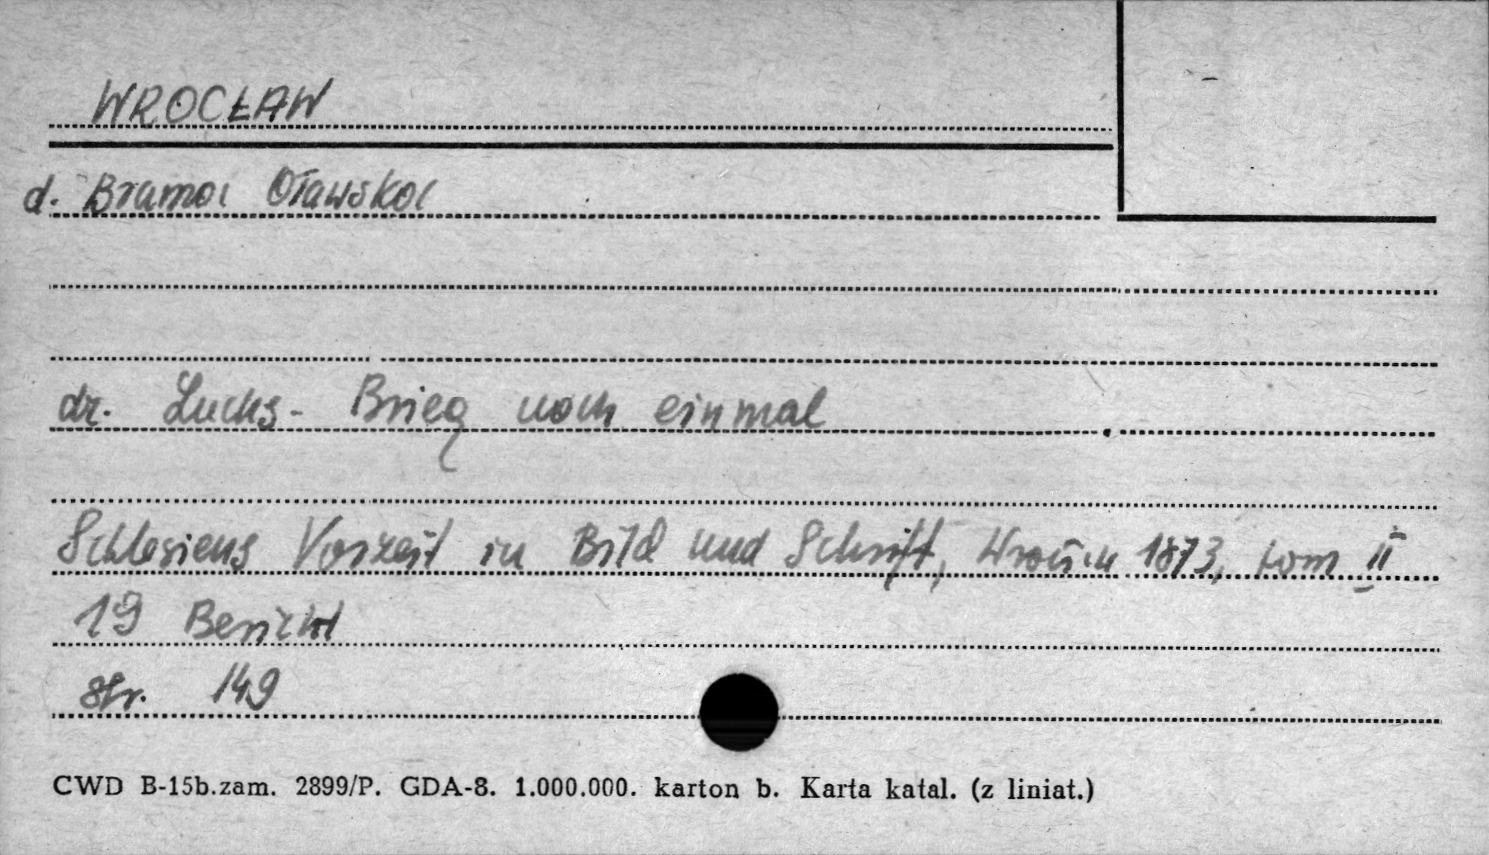 WROCŁAW
d. Brama Oławska
dr. Luchs - Brieg noch einmal
Schlesiens Vorzeit in Bild und Schrift, 1873, tom II
19 Bericht
str. 149
CWD B-15b.zam. 2899/P. GDA-8. 1.000.000. karton b. Karta katal. (z liniat.)